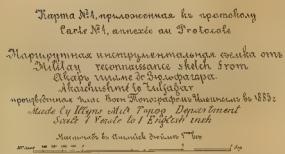 Карта №1, приложенная къ протоколу
Carte №1, annexée au Protocole
Маршрутная инструментальная съемка отъ
Military reconnaissance sketch from
Акаръ чешме до Зюльфагара.
Akarcheshme to Zulfagar
произведенная Воен Топографомъ въ 1885 г.
Made by Mil Topog Department
Scale 1 Verste to 1 English inch
Масштабъ въ Англійск дюймѣ 1 версты